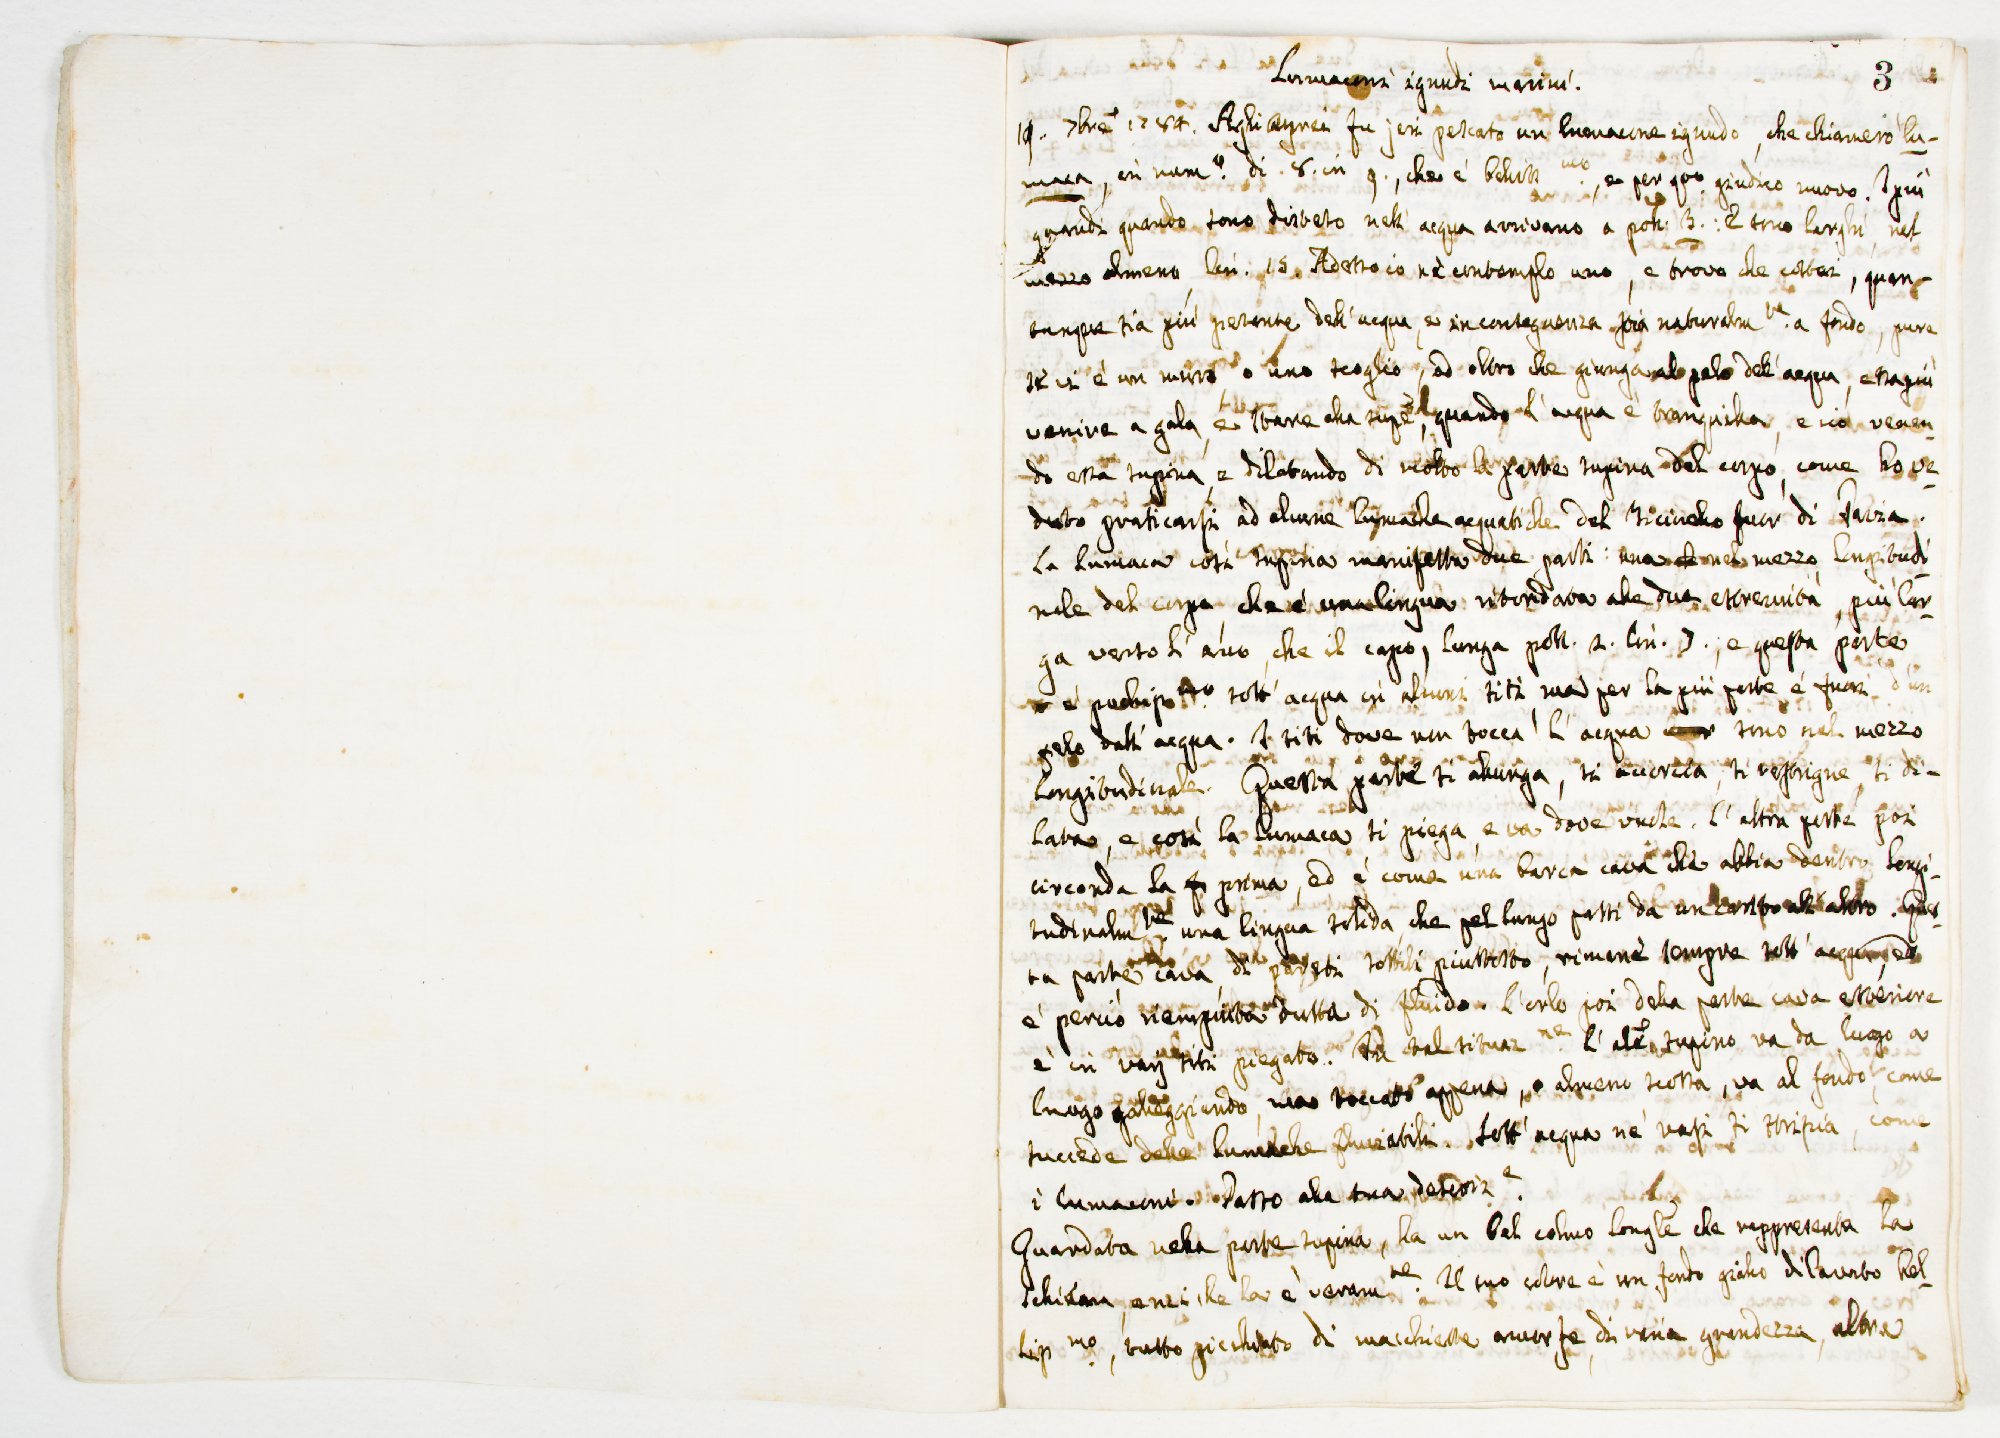 Lumaconi ignudi marini.
3
19. 7bre 1784. Agli fu jeri pescato un lumacone ignudo, che chiamerò lu-
maca, in num.o di 8. in 9., che è belliss.mo, e per q.o giudico nuovo. I più
grandi quando sono disteso nell' acqua arrivano a poll: 3.: E sono larghi nel
mezzo almeno lin: 15. Adesso io nè contemplo uno, e trovo che costui, quan-
tunque sia più pesante dell' acqua, e in conseguenza stia naturalm.te a fondo, pure
se vi è un muro o uno scoglio, od altro che giunga al pelo dell' acqua, essa può
venire a gala, e stare alla supe, quando l' acqua è tranquilla, e ciò venen-
do essa supina, e dilatando di molto la parte supina del corpo, come ho ve-
duto praticarsi ad alcune lumache acquatiche del Ticinello fuor di Pavia.
La lumaca così supina manifesta due parti: una nel mezzo longitudi-
nale del corpo, che è una lingua ritondata alle due estremità, più lar-
ga verso l' ano, che il capo, lunga poll. 2. lin. 7., e questa parte
è pochiss.mo sott' acqua in alcuni siti, ma per la più parte è fuori d'un
pelo dall' acqua. I siti dove non tocca l' acqua sono nel mezzo
longitudinale. Questa parte si allunga, si accorcia, si restrigne, si di-
lata, e così la lumaca si piega, e va dove vuole. L' altra parte poi
circonda la prima, ed è come una barca cava che abbia dentro longi-
tudinalm.te una lingua solida che pel lungo passi da un canto all' altro. Ques-
ta parte cava, di pareti sottili piuttosto, rimane sempre sott' acqua, ed
è perciò riempiuta tutta di fluido. L' orlo poi della parte cava esteriore
è in varj siti piegato. In tal situaz.ne l' ale supino va da luogo a
luogo galleggiando, ma toccato appena, o almeno scossa, va al fondo, come
succede delle lumache fluviatili. Sott' acqua nè vasi si striscia, come
i lumaconi. Passo alla sua descriz.e.
Guardata nella parte supina, ha un bel colmo longle che rappresenta la
schiena, anzi che la è veram.te. Il suo colore è un fondo giallo dilavato bel-
liss.mo, tutto picchiato di macchiette amorfe, di varia grandezza, altre